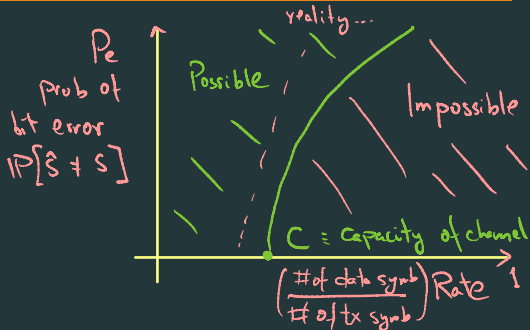 reality...
Pe
prob of
bit error
IP[ŝ ≠ s]
Possible
Impossible
C = Capacity of channel
(# of data symb / # of tx symb) Rate
1